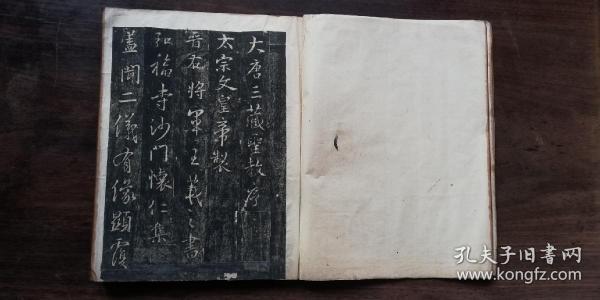 大唐三藏聖教序
太宗文皇帝製
晋右將軍王羲之書
弘福寺沙門懷仁集
蓋聞二儀有像顯覆
孔夫子旧书网
www.kongfz.com